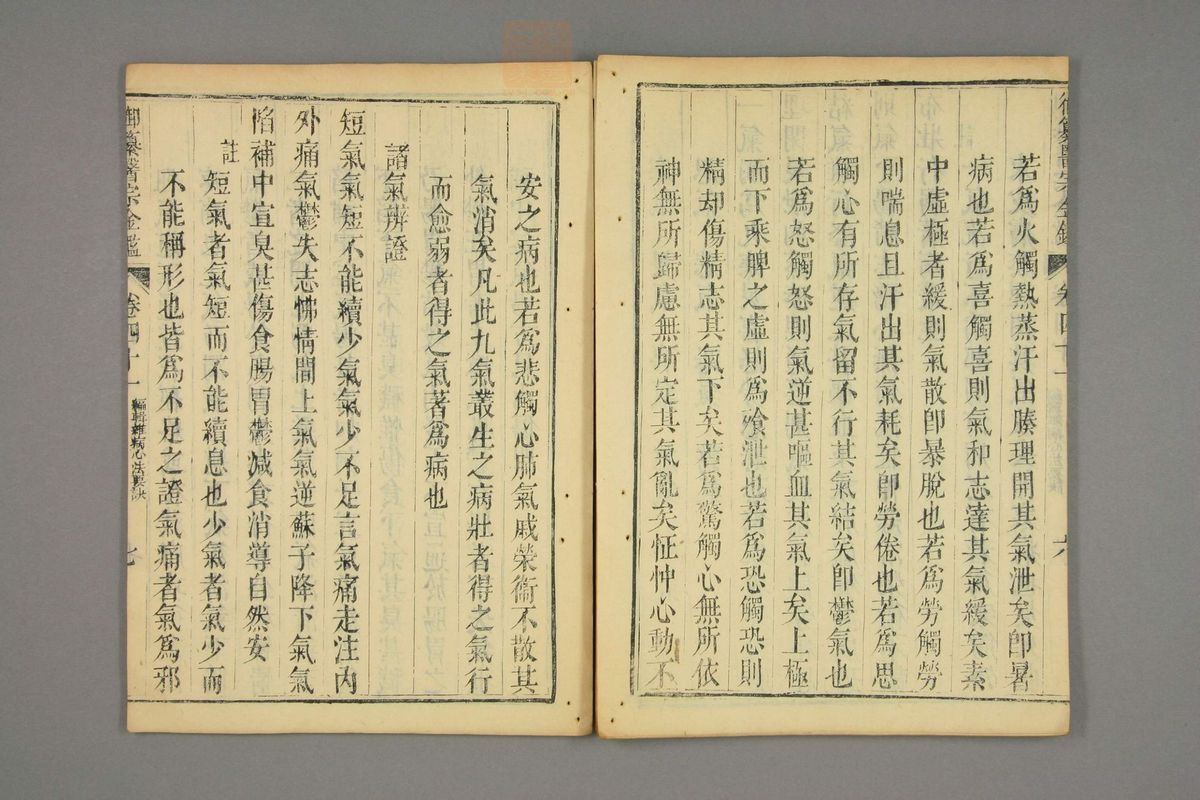 御纂醫宗金鑑 卷四十一 六
若爲火觸熱蒸汗出腠理開其氣泄矣卽暑
病也若爲喜觸喜則氣和志達其氣緩矣素
中虛極者緩則氣散卽暴脫也若爲勞觸勞
則喘息且汗出其氣耗矣卽勞倦也若爲思
觸心有所存氣留不行其氣結矣卽鬱氣也
若爲怒觸怒則氣逆甚嘔血其氣上矣上極
而下乘脾之虛則爲飱泄也若爲恐觸恐則
精却傷精志其氣下矣若爲驚觸心無所依
神無所歸慮無所定其氣亂矣怔忡心動不
安之病也若爲悲觸心肺氣戚榮衞不散其
氣消矣凡此九氣叢生之病壯者得之氣行
而愈弱者得之氣著爲病也
諸氣辨證
短氣氣短不能續少氣氣少不足言氣痛走注內
外痛氣鬱失志怫情間上氣氣逆蘇子降下氣氣
陷補中宣臭甚傷食腸胃鬱減食消導自然安
註
短氣者氣短而不能續息也少氣者氣少而
不能稱形也皆爲不足之證氣痛者氣爲邪
御纂醫宗金鑑 卷四十一 編輯雜病心法要訣 七